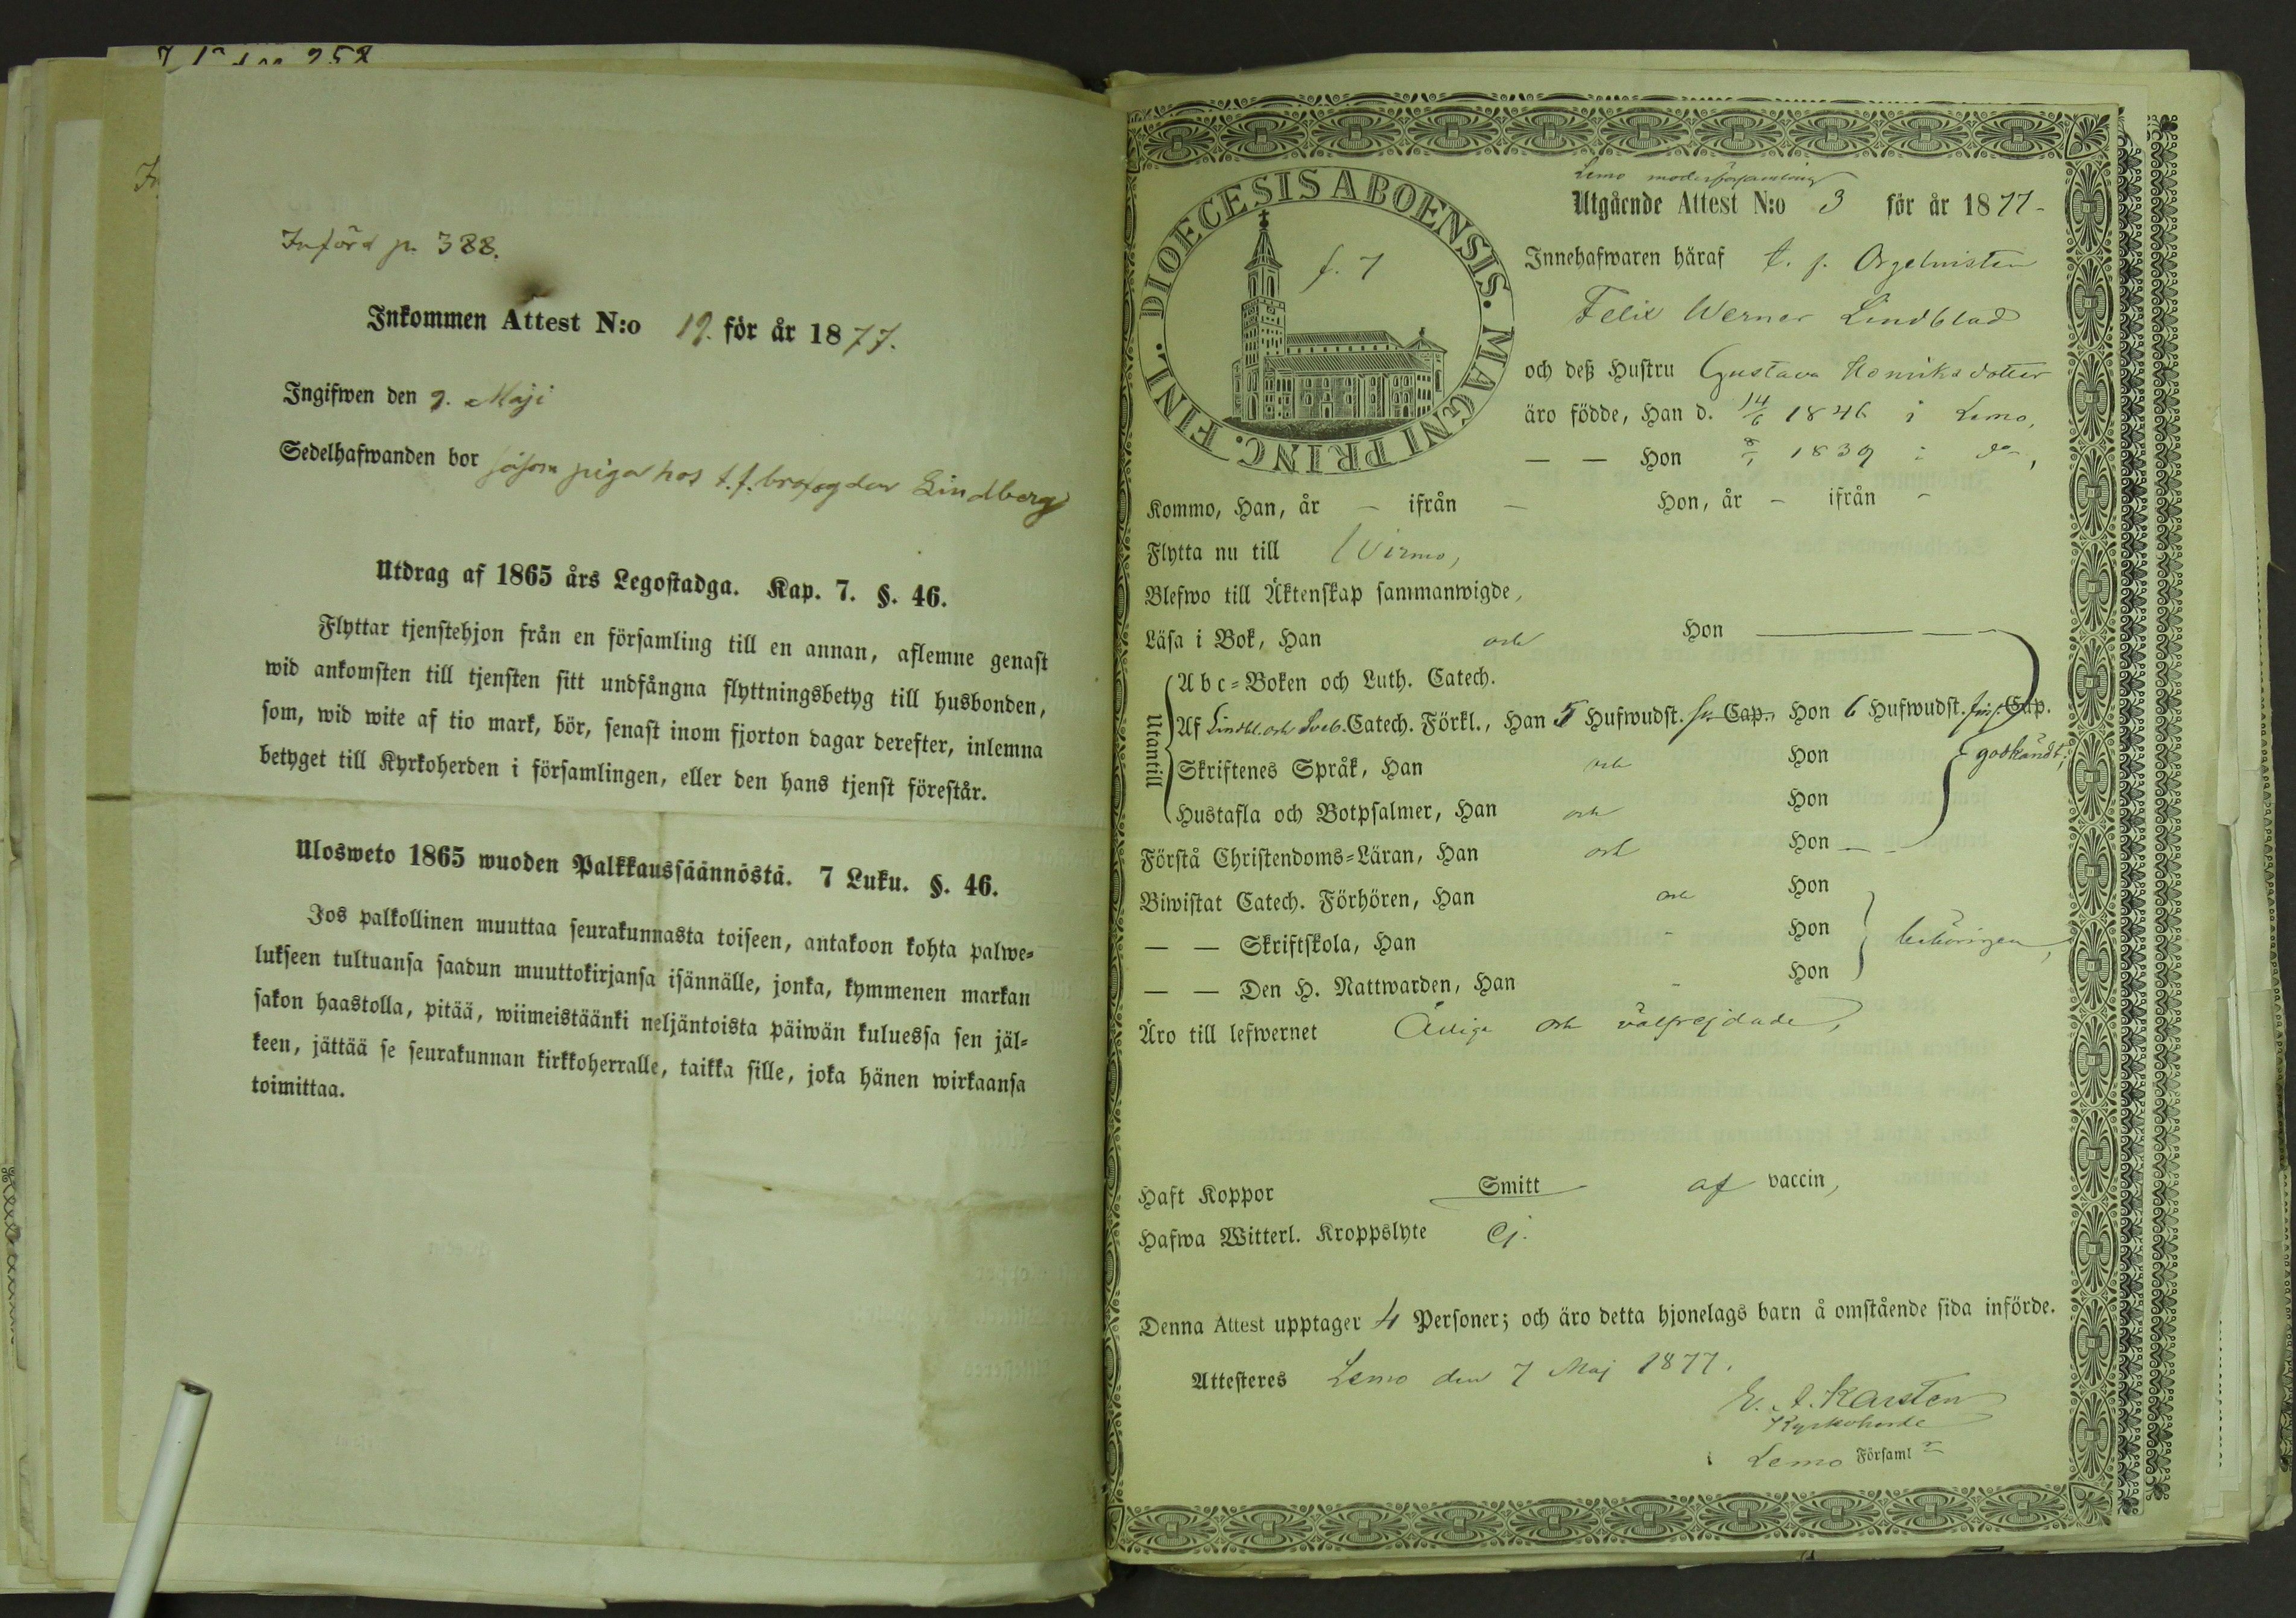 Införd p. 388.
Inkommen Attest N:o 19. för år 1877.
Ingifwen den 9. Maji
Sedelhafwanden bor såsom piga hos t. f. brofogden Lindberg
Utdrag af 1865 års Legostadga. Kap. 7. §. 46.
Flyttar tjenstehjon från en församling till en annan, aflemne genast
wid ankomsten till tjensten sitt undfångna flyttningsbetyg till husbonden,
som, wid wite af tio mark, bör, senast inom fjorton dagar derefter, inlemna
betyget till Kyrkoherden i församlingen, eller den hans tjenst förestår.
Ulosweto 1865 wuoden Palkkaussäännöstä. 7 Luku. §. 46.
Jos palkollinen muuttaa seurakunnasta toiseen, antakoon kohta palwe-
lukseen tultuansa saadun muuttokirjansa isännälle, jonka, kymmenen markan
sakon haastolla, pitää, wiimeistäänki neljäntoista päiwän kuluessa sen jäl-
keen, jättää se seurakunnan kirkkoherralle, taikka sille, joka hänen wirkaansa
toimittaa.
DIOECESIS ABOENSIS. MAGNI PRINC. FINL.
f. 7
Lemo moderförsamling
Utgående Attest N:o 3 för år 1877-
Innehafwaren häraf t. f. Orgelnisten
Felix Werner Lindblad
och deß Hustru Gustava Henriksdotter
äro födde, Han d. 14/6 1846 i Lemo,
— — Hon 8/1 1839 i do,
Kommo, Han, år - ifrån - Hon, år - ifrån -
Flytta nu till Wirmo,
Blefwo till Äktenskap sammanwigde,
Läsa i Bok, Han och Hon
Utantill
Abc-Boken och Luth. Catech.
Af Lindbl. och Sveb. Catech. Förkl., Han 5 Hufwudst. Cap. Hon 6 Hufwudst. Cap.
Skriftenes Språk, Han och Hon godkändt;
Hustafla och Botpsalmer, Han och Hon
Förstå Christendoms-Läran, Han och Hon
Biwistat Catech. Förhören, Han och Hon
— — Skriftskola, Han - Hon behörigen,
— — Den H. Nattwarden, Han - Hon
Äro till lefwernet Ärliga och välfrejdade,
Haft Koppor Smitt af vaccin,
Hafwa Witterl. Kroppslyte Ej.
Denna Attest upptager 4 Personer; och äro detta hjonelags barn å omstående sida införde.
Attesteres Lemo den 7 Maj 1877.
Karsten
Kyrkoherde
i Lemo Församl